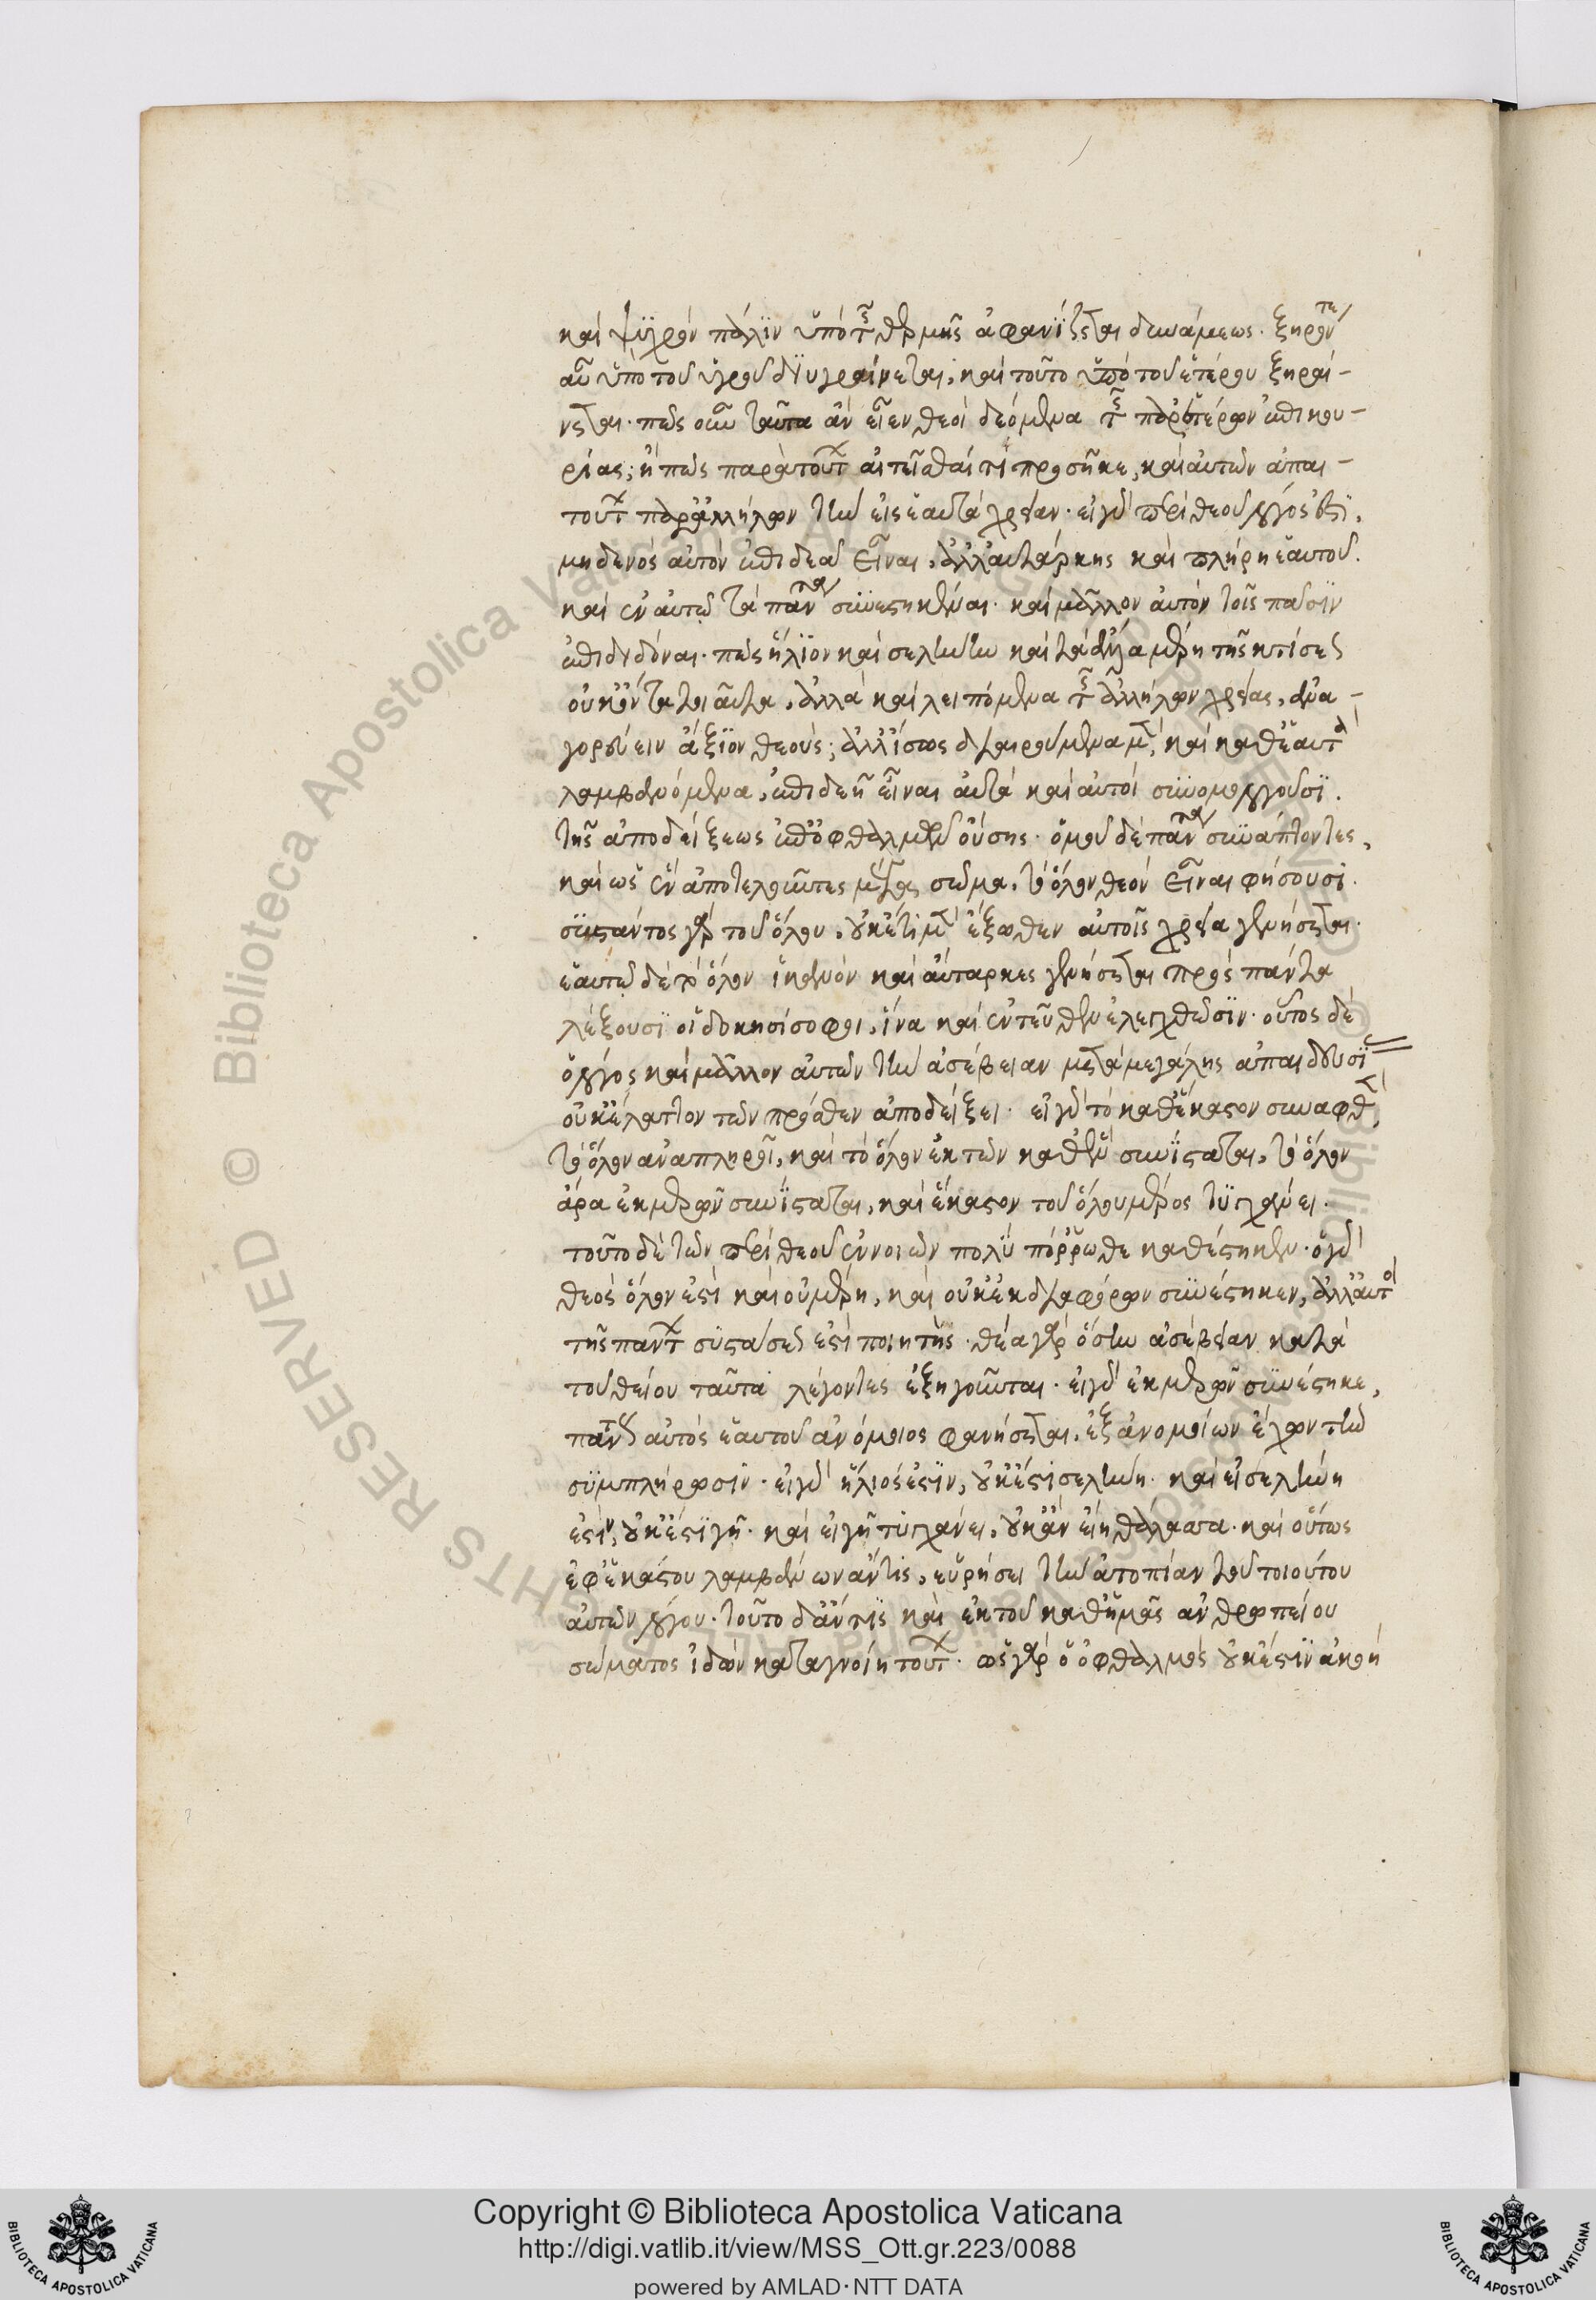 καὶ ψυχρὸν πάλιν ὑπὸ τῆς θερμῆς ἀφανίζεται δυνάμεως. ξηρόν τε
αὖ ὑπὸ τοῦ ὑγροῦ διυγραίνεται, καὶ τοῦτο ὑπὸ τοῦ ἑτέρου ξηραί-
νεται. πῶς οὖν ταῦτα ἂν εἶεν θεοὶ δεόμενα τῆς παρ' ἑτέρων ἐπικου-
ρίας; ἢ πῶς παρὰ τούτων αἰτεῖσθαί τι προσῆκε, καὶ αὐτῶν ἀπαι-
τούντων παρ' ἀλλήλων τὴν εἰς ἑαυτὰ χρείαν. εἰ γὰρ περὶ θεοῦ λόγος ἐστὶ,
μηδενὸς αὐτὸν ἐπιδεᾶ εἶναι, ἀλλ' αὐτάρκης καὶ πλήρη ἑαυτοῦ.
καὶ ἐν αὐτῷ τὰ πάντα συνεστηκέναι. καὶ μᾶλλον αὐτὸν τοῖς πᾶσιν
ἐπιδιδόναι. πῶς ἥλιον καὶ σελήνην καὶ τὰ ἄλλα μέρη τῆς κτίσεως
οὐκ ὄντα τοιαῦτα, ἀλλὰ καὶ λειπόμενα τῆς ἀλλήλων χρείας, ἀνα-
γορεύειν ἄξιον θεούς; ἀλλ' ἴσως διαιρούμενα μὲν, καὶ καθ' ἑαυτὰ
λαμβανόμενα, ἐπιδεῆ εἶναι αὐτὰ καὶ αὐτοὶ συνομολογοῦσι.
τῆς ἀποδείξεως ἐπ' ὀφθαλμῶν οὔσης. ὁμοῦ δὲ πάντα συνάπτοντες,
καὶ ὡς ἓν ἀποτελοῦντες μέγα σῶμα, τὸ ὅλον θεὸν εἶναι φήσουσι.
συστάντος γὰρ τοῦ ὅλου, οὐκέτι μὲν ἔξωθεν αὐτοῖς χρεία γενήσεται.
ἑαυτῷ δὲ τὸ ὅλον ἱκανὸν καὶ αὔταρκες γενήσεται πρὸς πάντα
λέξουσι οἱ δοκησίσοφοι, ἵνα καὶ ἐντεῦθεν ἐλεγχθῶσιν. οὗτος δὲ
ὁ λόγος καὶ μᾶλλον αὐτῶν τὴν ἀσέβειαν μετὰ μεγάλης ἀπαιδουσί
οὐκ ἔλαττον τῶν πρόσθεν ἀποδείξει. εἰ γὰρ τὸ καθ' ἕκαστον συναφθὲν
τὸ ὅλον ἀναπληροῖ, καὶ τὸ ὅλον ἐκ τῶν καθ' ἓν συνίσταται, τὸ ὅλον
ἄρα ἐκ μερῶν συνίσταται, καὶ ἕκαστον τοῦ ὅλου μέρος τυγχάνει.
τοῦτο δὲ τῶν περὶ θεοῦ ἐννοιῶν πολὺ πόρρωθε καθέστηκεν. ὁ γὰρ
θεὸς ὅλον ἐστὶ καὶ οὐ μέρη, καὶ οὐκ ἐκ διαφόρων συνέστηκεν, ἀλλ' αὐτὸς
τῆς πάντων συστάσεώς ἐστι ποιητής. θέα γὰρ ὅσην ἀσέβειαν κατὰ
τοῦ θείου ταῦτα λέγοντες ἐξηγοῦνται. εἰ γὰρ ἐκ μερῶν συνέστηκε,
πάντως αὐτὸς ἑαυτοῦ ἀνόμοιος φανήσεται, ἐξ ἀνομοίων ἔχων τὴν
συμπλήρωσιν. εἰ γὰρ ἥλιός ἐστιν, οὐκ ἔστι σελήνη. καὶ εἰ σελήνη
ἐστὶν, οὐκ ἔστι γῆ. καὶ εἰ γῆ τυγχάνει, οὐκ ἂν εἴη θάλασσα. καὶ οὕτως
ἐφ' ἑκάστου λαμβάνων ἄν τις, εὑρήσει τὴν ἀτοπίαν τοῦ τοιούτου
αὐτῶν λόγου. τοῦτο δ' ἄν τις καὶ ἐκ τοῦ καθ' ἡμᾶς ἀνθρωπείου
σώματος ἰδὼν καταγνοίη τούτων. ὡς γὰρ ὁ ὀφθαλμὸς οὐκ ἔστιν ἀκοή
Copyright © Biblioteca Apostolica Vaticana
http://digi.vatlib.it/view/MSS_Ott.gr.223/0088
powered by AMLAD·NTT DATA
BIBLIOTECA APOSTOLICA VATICANA
BIBLIOTECA APOSTOLICA VATICANA